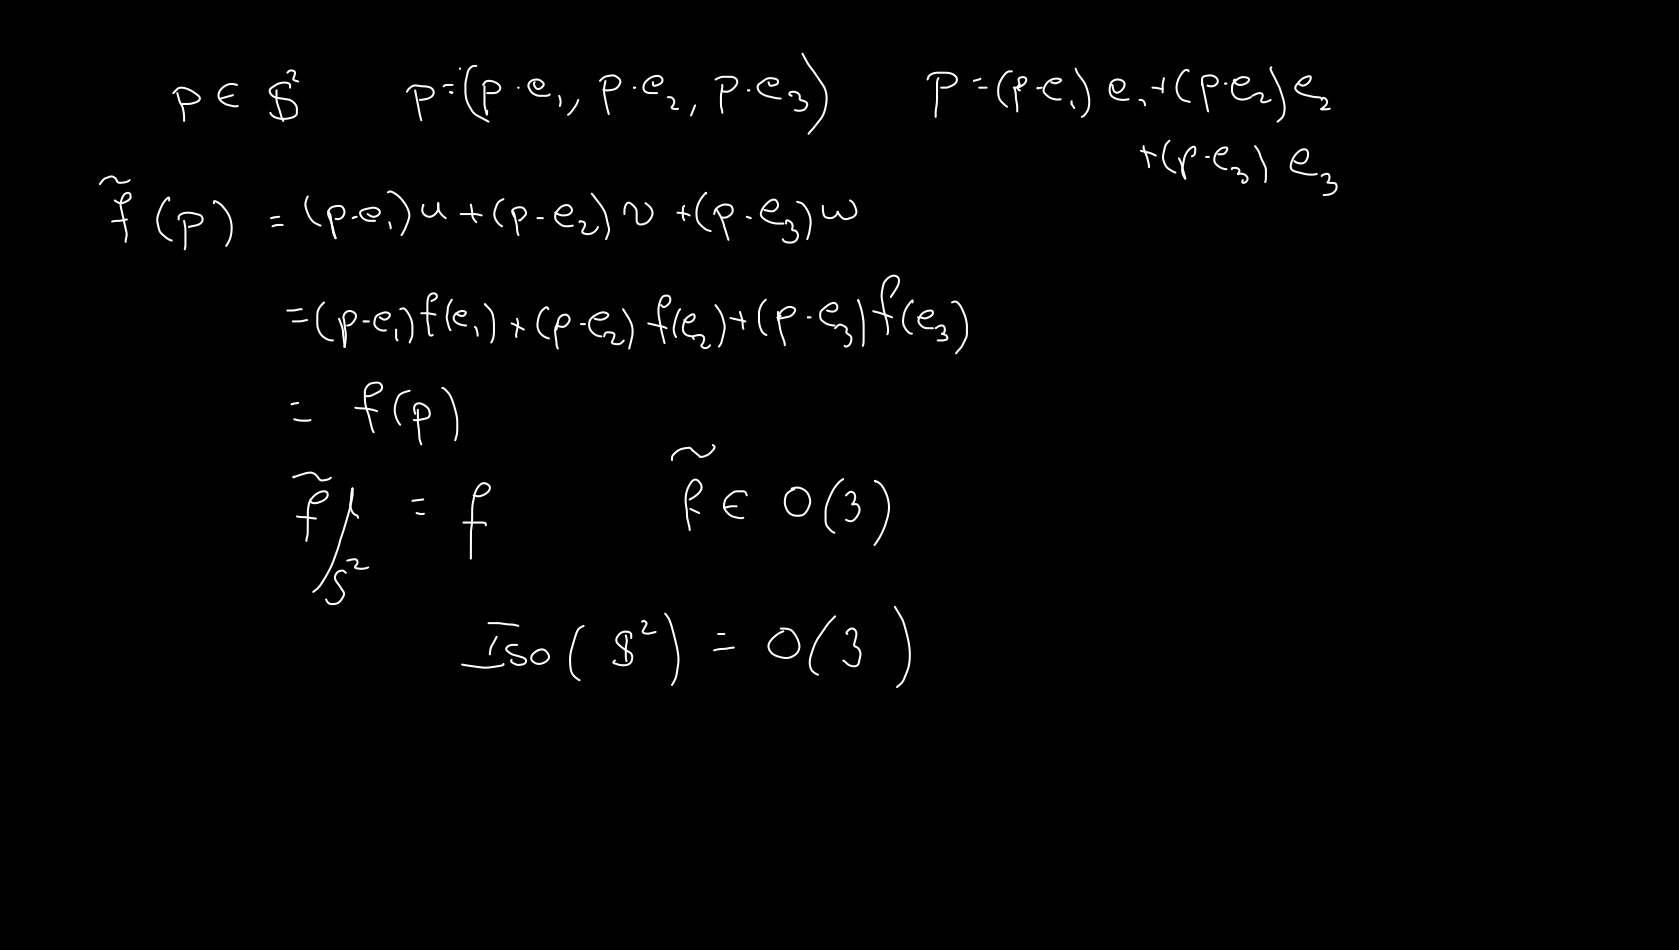 p ∈ $² p=(p·e₁, p·e₂, p·e₃) p=(p·e₁)e₁+(p·e₂)e₂
+(p·e₃) e₃
f̃(p) = (p·e₁)u+(p·e₂)v+(p·e₃)w
=(p·e₁)f(e₁)+(p·e₂)f(e₂)+(p·e₃)f(e₃)
= f(p)
f̃|S² = f f̃ ∈ O(3)
Iso($²) = O(3)